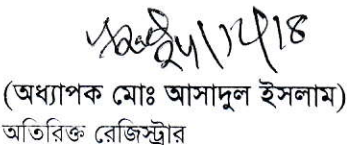 (অধ্যাপক মোঃ আসাদুল ইসলাম)
অতিরিক্ত রেজিস্ট্রার